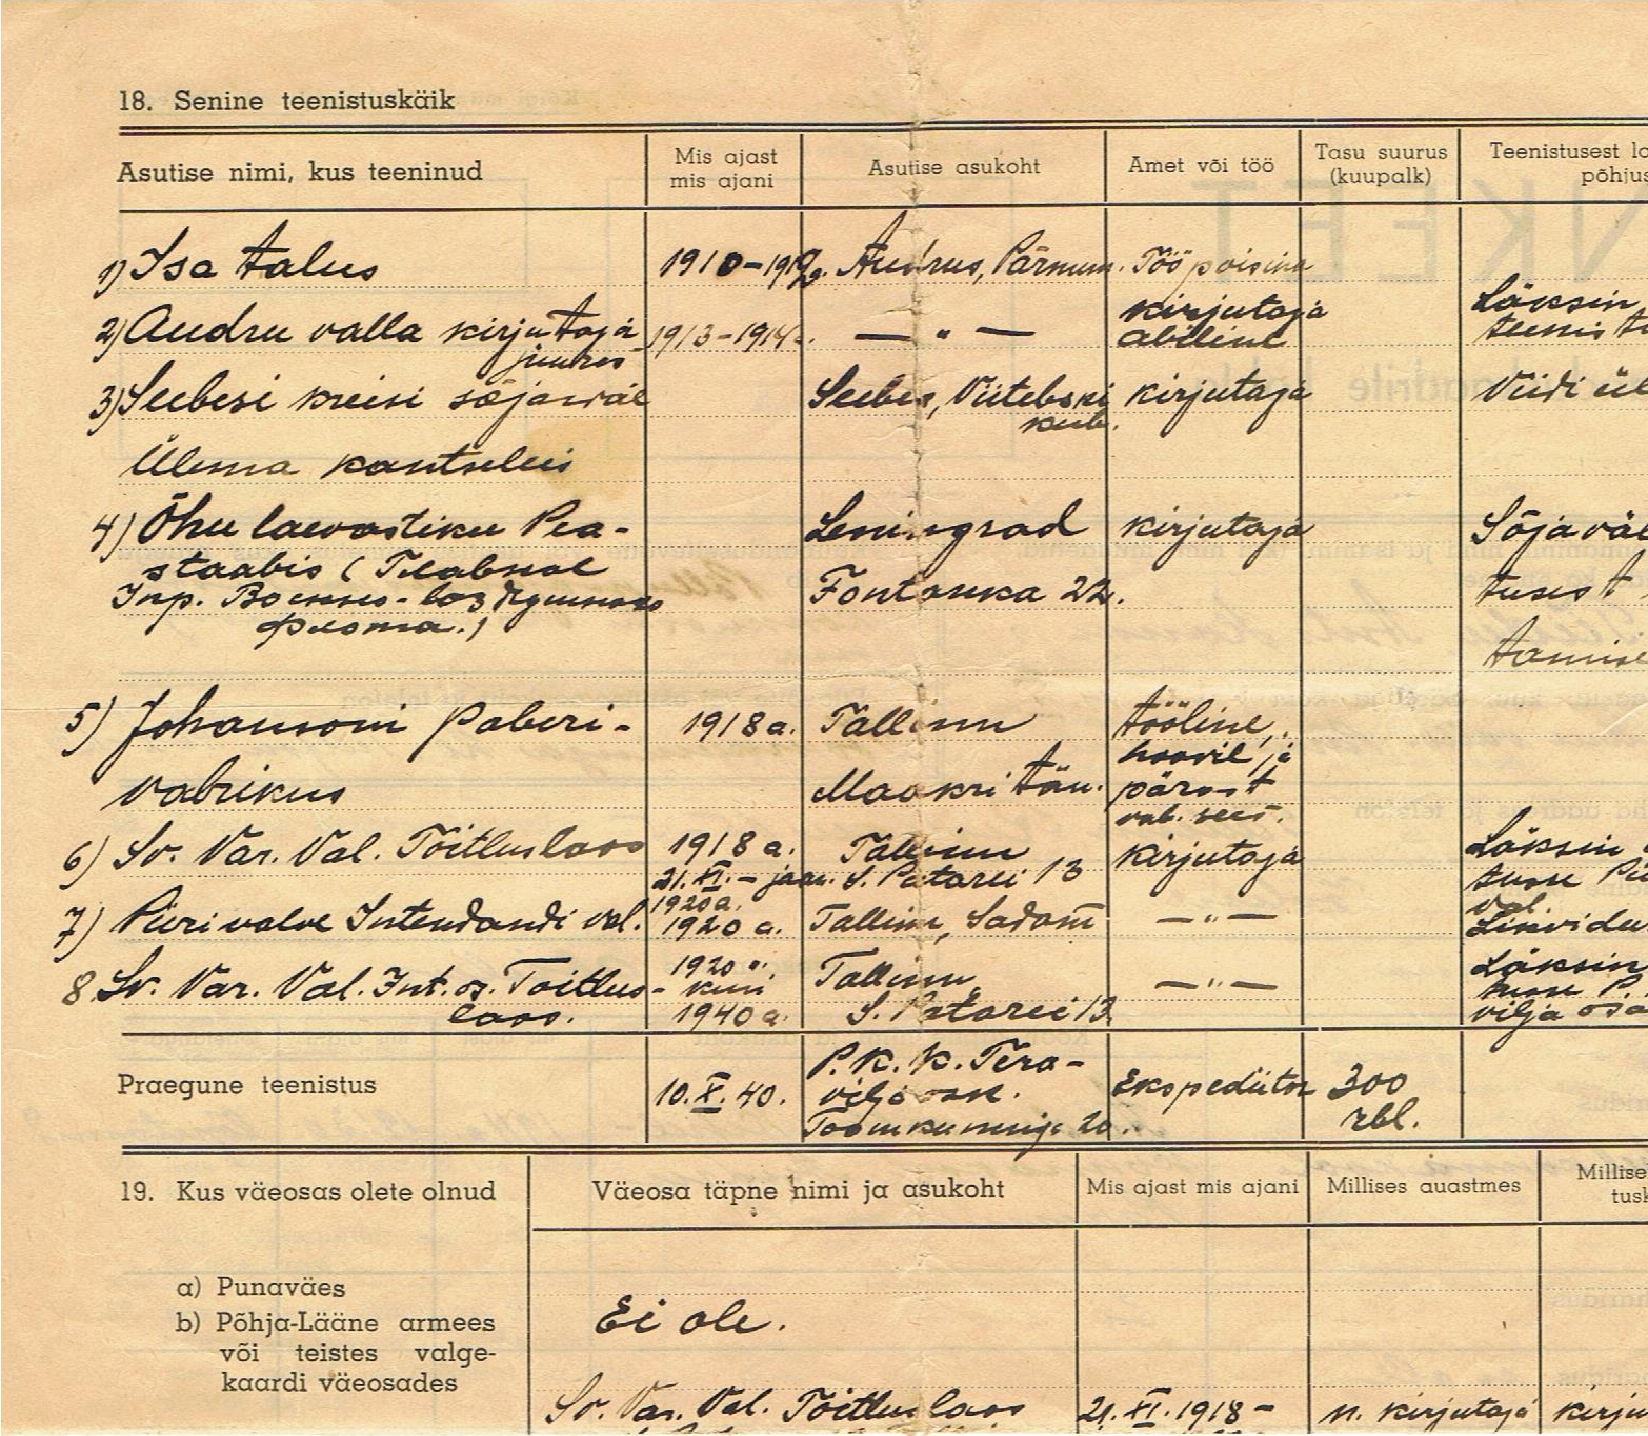 18. Senine teenistuskäik
Asutise nimi, kus teeninud
Mis ajast
mis ajani
Asutise asukoht
Amet või töö
Tasu suurus
(kuupalk)
Teenistusest la
põhjus
1) Isa talus
1910-1912a.
Audrus, Pärnum.
Tööpoisina
2) Audru valla kirjutaja
juures
1913-1914a.
— " —
kirjutaja
abiline
Läksin
teenistu
3) Seebesi kreisi sõjaväe
Ülema kantselei
Seebes, Viitebski
kub.
kirjutaja
Viidi üle
4) Õhu laevastiku Pea-
staabis (
Leningrad
Fontanka 22.
kirjutaja
Sõjaväe
tusest
tamise
5) Johansoni paberi-
vabrikus
1918 a.
Tallinn
Maakri tän.
tööline,
hoovil, ja
pärast
vab. sees.
6) Sv. Var. Val. Toitlusladu
1918 a.
21. XI. - jaan.
1920 a.
Tallinn
S. Patarei 13
kirjutaja
Läksin
7) Piirivalve Intendandi val.
1920 a.
Tallinn, Sadam
— " —
val.
Likvidee
8 Sv. Var. Val. Int. os. Toitlus-
laos.
1920 a.
kuni
1940 a.
Tallinn,
S. Patarei 13
— " —
Läksin
vilja osa
Praegune teenistus
10. X. 40.
P. K. K. Tera-
vilja osak.
Toomkuninga 20.
Ekspediitor
300
rbl.
19. Kus väeosas olete olnud
Väeosa täpne nimi ja asukoht
Mis ajast mis ajani
Millises auastmes
Millise
tusk
a) Punaväes
Ei ole.
b) Põhja-Lääne armees
või teistes valge-
kaardi väeosades
Sv. Var. Val. Toitlus laos
21. XI. 1918 -
n. kirjutaja
kirju